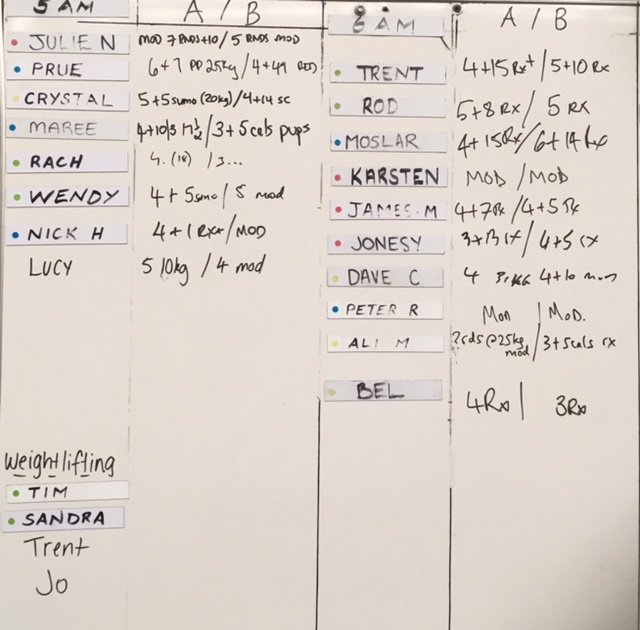 5 AM A / B
JULIE N MOD 7 RNDS+10 / 5 RNDS MOD
PRUE 6+7 PP 25kg / 4+49
CRYSTAL 5+5 sumo (20kg) / 4+14 sc
MAREE / 3+5 cals pups
RACH 4. (18) / 3...
WENDY 4+5 sumo / 5 mod
NICK H 4+1 RX+ / MOD
LUCY 5 10kg / 4 mod
Weightlifting
TIM
SANDRA
Trent
Jo
6 AM A / B
TRENT 4+15 Rx+ / 5+10 Rx
ROD 5+8 RX / 5 RX
MOSLAR 4+15 Rx / 6+14 Rx
KARSTEN MOD / MOD
JAMES. M 4+7 Rx / 4+5 Rx
JONESY 3+13 rx / 4+5 rx
DAVE C 4 4+10
PETER R MOD | MOD.
ALI M 2 rds @25kg mod / 3+5cals rx
BEL 4 Rx | 3 Rx